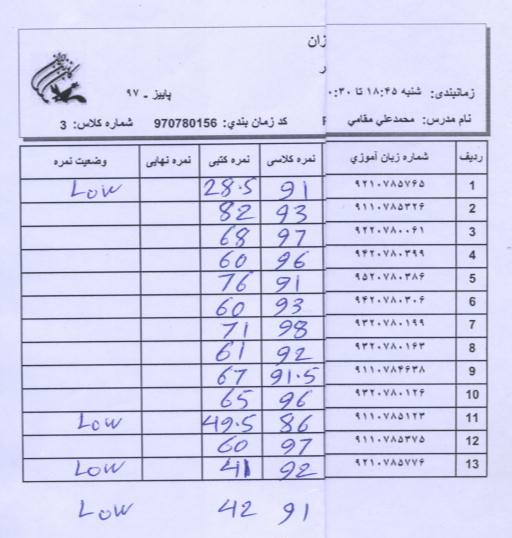 زان
ر
زمانبندی: شنبه ۱۸:۴۵ تا ۰:۳۰
پاییز ـ ۹۷
نام مدرس: محمدعلي مقامي
کد زمان بندي: 970780156
شماره کلاس: 3
ردیف شماره زبان آموزي نمره کلاسی نمره کتبی نمره نهایی وضعیت نمره
1 ۹۲۱۰۷۸۵۷۶۵ 91 28.5 Low
2 ۹۱۱۰۷۸۵۳۲۶ 93 82
3 ۹۲۲۰۷۸۰۰۶۱ 97 68
4 ۹۴۲۰۷۸۰۳۹۹ 96 60
5 ۹۵۲۰۷۸۰۳۸۶ 91 76
6 ۹۴۲۰۷۸۰۳۰۶ 93 60
7 ۹۳۲۰۷۸۰۱۹۹ 98 71
8 ۹۳۲۰۷۸۰۱۶۳ 92 61
9 ۹۱۱۰۷۸۴۶۳۸ 91.5 67
10 ۹۳۲۰۷۸۰۱۲۶ 96 65
11 ۹۱۱۰۷۸۵۱۲۳ 86 49.5 Low
12 ۹۲۱۰۷۸۵۳۷۵ 97 60
13 ۹۲۱۰۷۸۵۷۷۶ 92 41 Low
91 42 Low